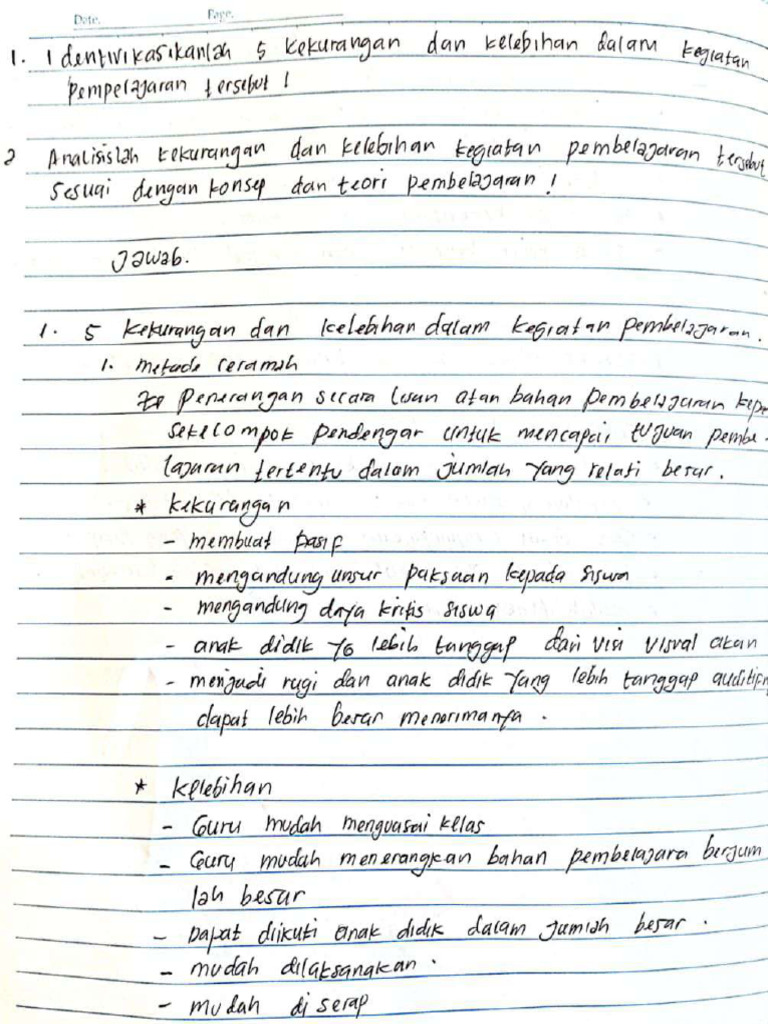 Date. Page.
1. Identivikasikanlah 5 kekurangan dan kelebihan dalam kegiatan
pempelajaran tersebut!
2 Analisislah kekurangan dan kelebihan kegiatan pembelajaran tersebut
sesuai dengan konsep dan teori pembelajaran!
Jawab.
1. 5 kekurangan dan kelebihan dalam kegiatan pembelajaran.
1. metode ceramah
penerangan secara lisan atan bahan pembelajaran kepa
sekelompok pendengar untuk mencapai tujuan pembe-
lajaran tertentu dalam jumlah yang relati besar.
* kekurangan
- membuat pasif
- mengandung unsur paksaan kepada siswa
- mengandung daya kritis siswa
- anak didik yg lebih tanggap dari visi visval akan
- menjadi rugi dan anak didik yang lebih tanggap auditifn
dapat lebih besar menerimanya.
* kelebihan
- Guru mudah menguasai kelas
- Guru mudah menerangkan bahan pembelajara berjum
lah besar
- Dapat diikuti anak didik dalam jumlah besar.
- mudah dilaksangkan.
- mudah di serap